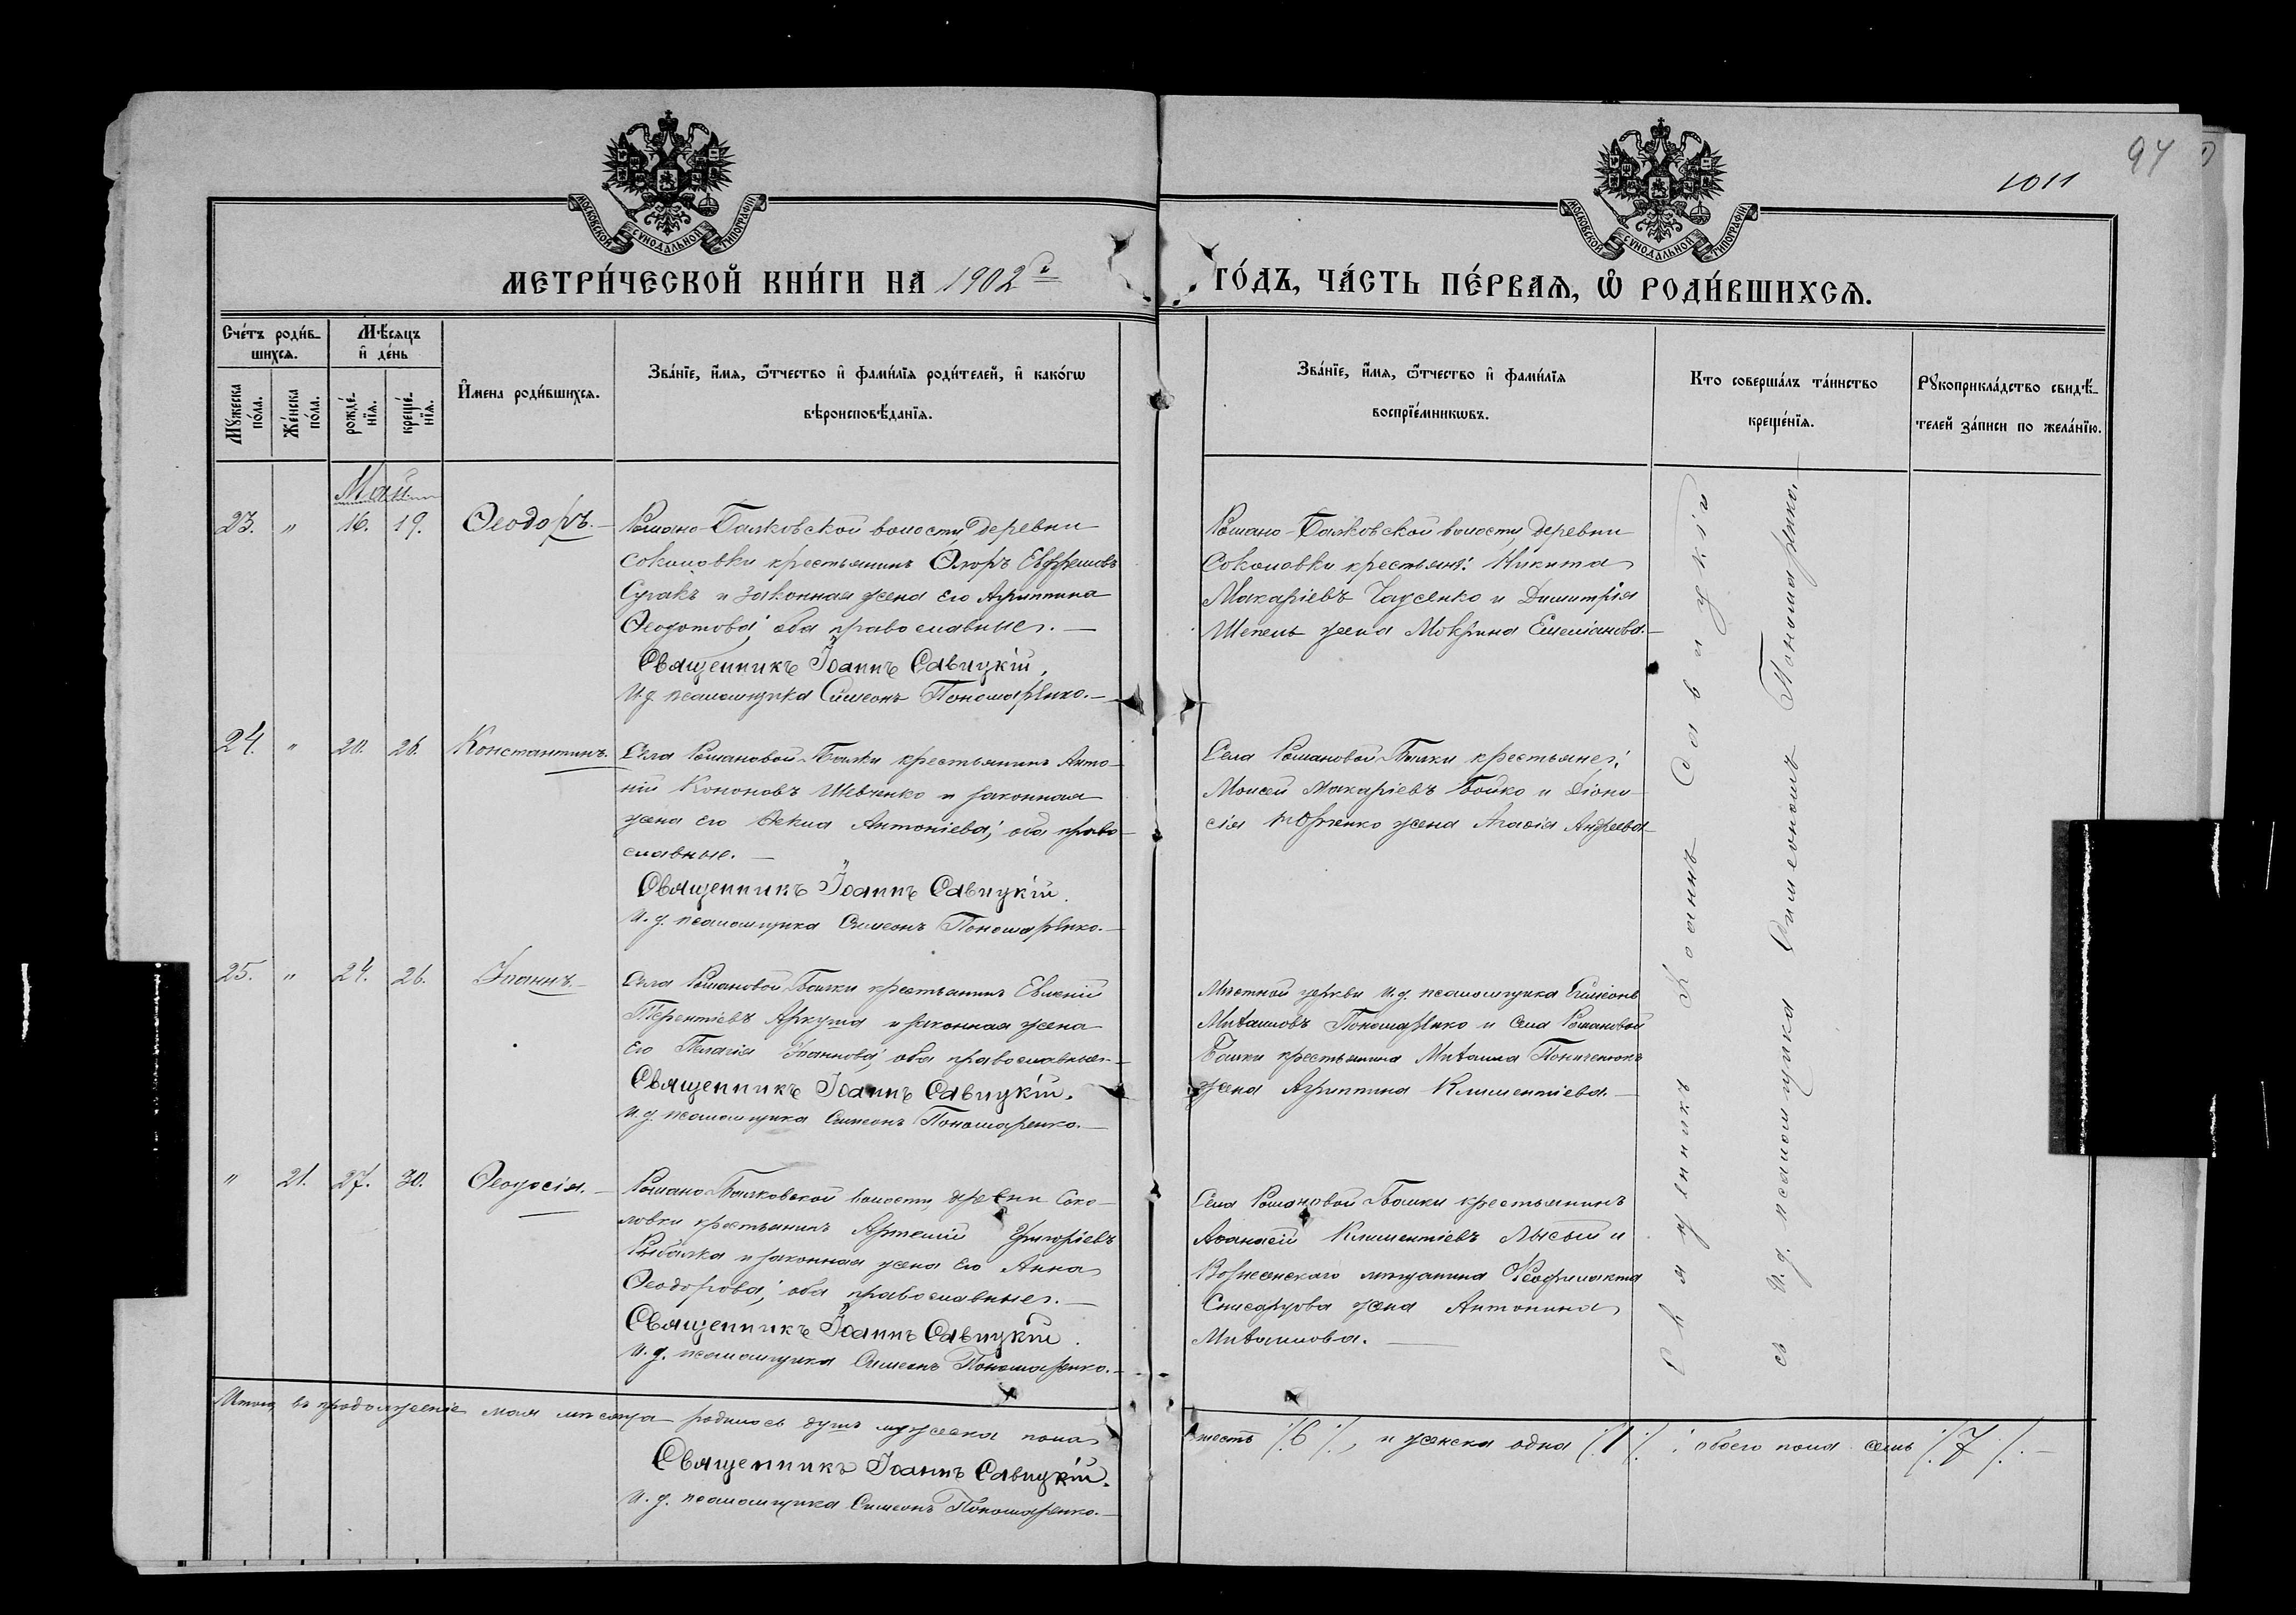 94
1011
МОСКОВСКОЙ СѴНОДАЛЬНОЙ ТИПОГРАФІИ
МОСКОВСКОЙ СѴНОДАЛЬНОЙ ТИПОГРАФІИ
МЕТРИ́ЧЕСКОЙ КНИ́ГИ НА 1902й ГО́ДЪ, ЧА́СТЬ ПЕ́РВАѦ, Ѡ РОДИ́ВШИХСѦ.
Счéтъ роди́в-
шихсѧ.
Мѣ́сѧцъ
и҆ де́нь
Мꙋ́жеска
по́ла.
Же́нска
по́ла.
рожде́-
нїѧ.
креще́-
нїѧ.
И҆мена̀ роди́вшихсѧ.
Зва́нїе, и҆́мѧ, ѻ҆́тчество и҆ фами́лїѧ роди́телей, и҆ како́гѡ
вѣроисповѣ́данїѧ.
Зва́нїе, и҆́мѧ, ѻ҆́тчество и҆ фами́лїѧ
воспрїе́мникѡвъ.
Кто̀ соверша́лъ та́инство
креще́нїѧ.
Рꙋкоприкла́дство свидѣ́-
телей за́писи по жела́нїю.
Май.
23. " 16. 19. Ѳеодоръ.
Романо-Балковской волости, деревни
Соколовки крестьянинъ Флоръ Евфремовъ
Сугакъ и законная жена его Агриппина
Ѳеодотова; оба православные. —
Священникъ Іоаннъ Савицкій.
И. д. псаломщика Симеонъ Пономаренко. —
Романо-Балковской волости, деревни
Соколовки крестьяне: Никита
Макаріевъ Чаусенко и Димитрія
Шепель жена Мокрина Емеліанова. —
24. " 20. 26. Константинъ.
Села Романовой-Балки крестьянинъ Анто-
ній Кононовъ Шевченко и законная
жена его Ѳекла Антоніева; оба право-
славные. —
Священникъ Іоаннъ Савицкій.
И. д. псаломщика Симеонъ Пономаренко. —
Села Романовой-Балки крестьяне:
Моисей Макаріевъ Бойко и Діони-
сія жена Агаѳія Андреева
25. " 24. 26. Іоаннъ. —
Села Романовой-Балки крестьянинъ Евменій
Терентіевъ Аркуша и законная жена
его Пелагія Іоаннова; оба православные. —
Священникъ Іоаннъ Савицкій.
И. д. псаломщика Симеонъ Пономаренко. —
Мѣстной церкви и. д. псаломщика Симеонъ
Михаиловъ Пономаренко и села Романовой
Балки крестьянина Михаила
жена Агриппина Климентіева. —
" 21. 27. 30. Ѳеодосія. —
Романо-Балковской волости, деревни Соко-
ловки крестьянинъ Артемій Григоріевъ
Рыбалка и законная жена его Анна
Ѳеодорова; оба православные. —
Священникъ Іоаннъ Савицкій.
И. д. псаломщика Симеонъ Пономаренко. —
Села Романовой-Балки крестьянинъ
Аѳанасій Климентіевъ Лысый и
Вознесенскаго мѣщанина Ѳеофилакта
жена Антонина
Михаилова. —
Священникъ Іоаннъ Савицкій
съ и. д. псаломщика Симеономъ Пономаренко. —
Итого, въ продолженіе мая мѣсяца родилось душъ мужеска пола
шесть /6/, и женска одна /1/; обоего пола семь /7/. —
Священникъ Іоаннъ Савицкій.
И. д. псаломщика Симеонъ Пономаренко. —